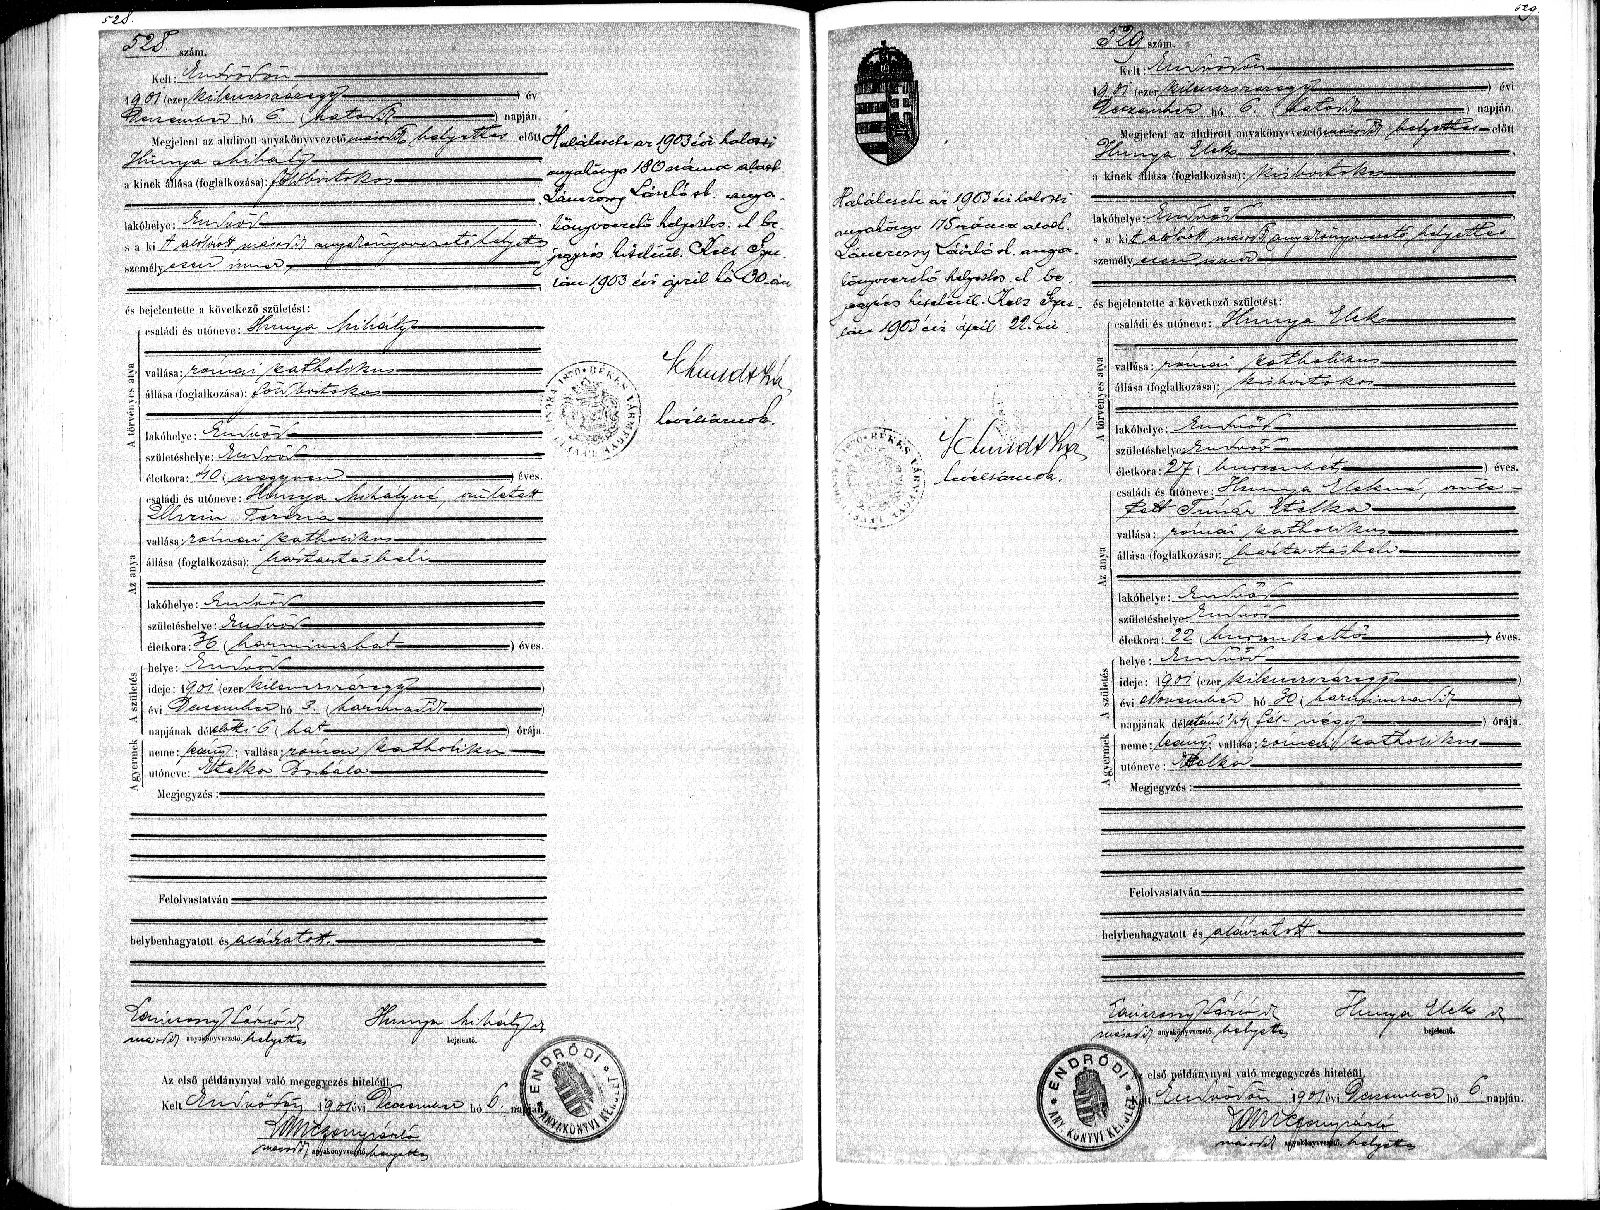 528.
528 szám.
Kelt: Endrődön
1901 (ezer kilenczszázegy) év
Deczember hó 6. (hatodik) napján.
Megjelent az alulirott anyakönyvvezető második helyettes előtt
Hunya Mihály
a kinek állása (foglalkozása): földbirtokos
lakóhelye: Endrőd
s a kit alulirott második anyakönyvvezető helyettes
személyesen ismer,
és bejelentette a következő születést:
A törvényes atya
családi és utóneve: Hunya Mihály
vallása: római katholikus
állása (foglalkozása): földbirtokos
lakóhelye: Endrőd
születéshelye: Endrőd
életkora: 40 (negyven) éves.
Az anya
családi és utóneve: Hunya Mihályné, született
Terézia
vallása: római katholikus
állása (foglalkozása): háztartásbeli
lakóhelye: Endrőd
születéshelye: Endrőd
életkora: 36 (harminczhat) éves.
A születés
helye: Endrőd
ideje: 1901 (ezer kilenczszázegy)
évi Deczember hó 3. (harmadik)
napjának délelőtti 6 (hat) órája.
A gyermek
neme: leány; vallása: római katholikus
utóneve: Etelka Borbála
Megjegyzés:
Felolvastatván
helybenhagyatott és aláiratott.
Lánczony László sk Hunya Mihály sk
második anyakönyvvezető helyettes bejelentő.
Az első példánynyal való megegyezés hiteléül.
Kelt Endrődön 1901 évi Deczember hó 6. napján.
Lánczony László
második anyakönyvvezető helyettes
ENDRŐDI ANYAKÖNYVI KERÜLET
Halálesete az 1903 évi halotti
anyakönyv 180 száma alatt
Lánczony László sk. anya-
könyvvezető helyettes. A be-
jegyzés hiteléül. Kelt Gyu-
lán 1903 évi április hó 30-án
levéltárnok.
BÉKÉS VÁRMEGYE
529.
529 szám.
Kelt: Endrődön
1901 (ezer kilenczszázegy) évi
Deczember hó 6. (hatodik) napján.
Megjelent az alulirott anyakönyvvezető második helyettes előtt
Hunya Elek
a kinek állása (foglalkozása): kisbirtokos
lakóhelye: Endrőd
s a kit alulirott második anyakönyvvezető helyettes
személyesen ismer
és bejelentette a következő születést:
A törvényes atya
családi és utóneve: Hunya Elek
vallása: római katholikus
állása (foglalkozása): kisbirtokos
lakóhelye: Endrőd
születéshelye: Endrőd
életkora: 27 (huszonhét) éves.
Az anya
családi és utóneve: Hunya Elekné, szüle-
tett Tímár Etelka
vallása: római katholikus
állása (foglalkozása): háztartásbeli
lakóhelye: Endrőd
születéshelye: Endrőd
életkora: 22 (huszonkettő) éves.
A születés
helye: Endrőd
ideje: 1901 (ezer kilenczszázegy)
évi November hó 30 (harminczadik)
napjának délutáni 1/2 4 (fél négy) órája.
A gyermek
neme: leány; vallása: római katholikus
utóneve: Etelka
Megjegyzés:
Felolvastatván
helybenhagyatott és aláiratott.
Lánczony László sk Hunya Elek sk
második anyakönyvvezető. helyettes bejelentő.
Az első példánynyal való megegyezés hiteléül.
Kelt Endrődön 1901 évi Deczember hó 6 napján.
Lánczony László
második anyakönyvvezető, helyettes
ENDRŐDI ANY. KÖNYVI KERÜLET
Halálesete az 1903 évi halotti
anyakönyv 175 száma alatt.
Lánczony László sk. anya-
könyvvezető helyettes. A be-
jegyzés hiteléül. Kelt Gyu-
lán 1903 évi április 22-én
levéltárnok.
BÉKÉS VÁRMEGYE